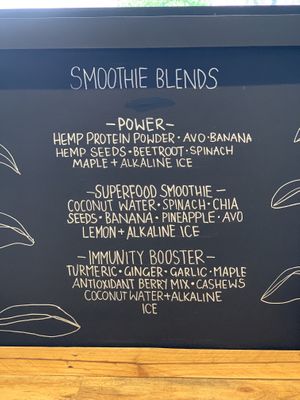 SMOOTHIE BLENDS
-POWER-
HEMP PROTEIN POWDER · AVO · BANANA
HEMP SEEDS · BEETROOT · SPINACH
MAPLE + ALKALINE ICE
-SUPERFOOD SMOOTHIE-
COCONUT WATER · SPINACH · CHIA
SEEDS · BANANA · PINEAPPLE · AVO
LEMON + ALKALINE ICE
-IMMUNITY BOOSTER-
TURMERIC · GINGER · GARLIC · MAPLE
ANTIOXIDANT BERRY MIX · CASHEWS
COCONUT WATER + ALKALINE
ICE